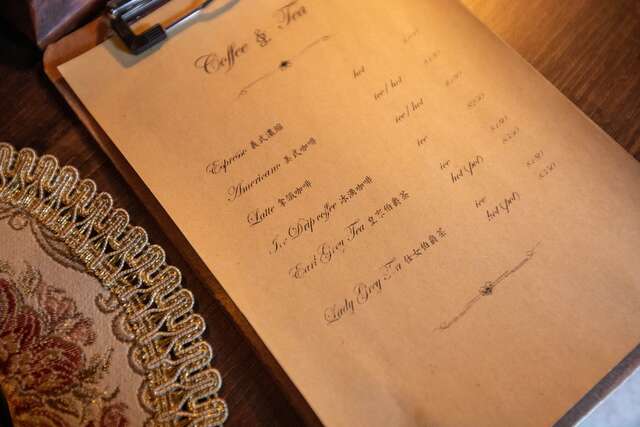 Coffee & Tea
Espresso 義式濃縮 hot
Americano 美式咖啡 ice/hot
Latte 拿鐵咖啡 ice/hot
Ice Drip coffee 冰滴咖啡 ice
Earl Grey Tea 皇家伯爵茶 ice
hot(pot)
Lady Grey Tea 仕女伯爵茶 ice
hot(pot)